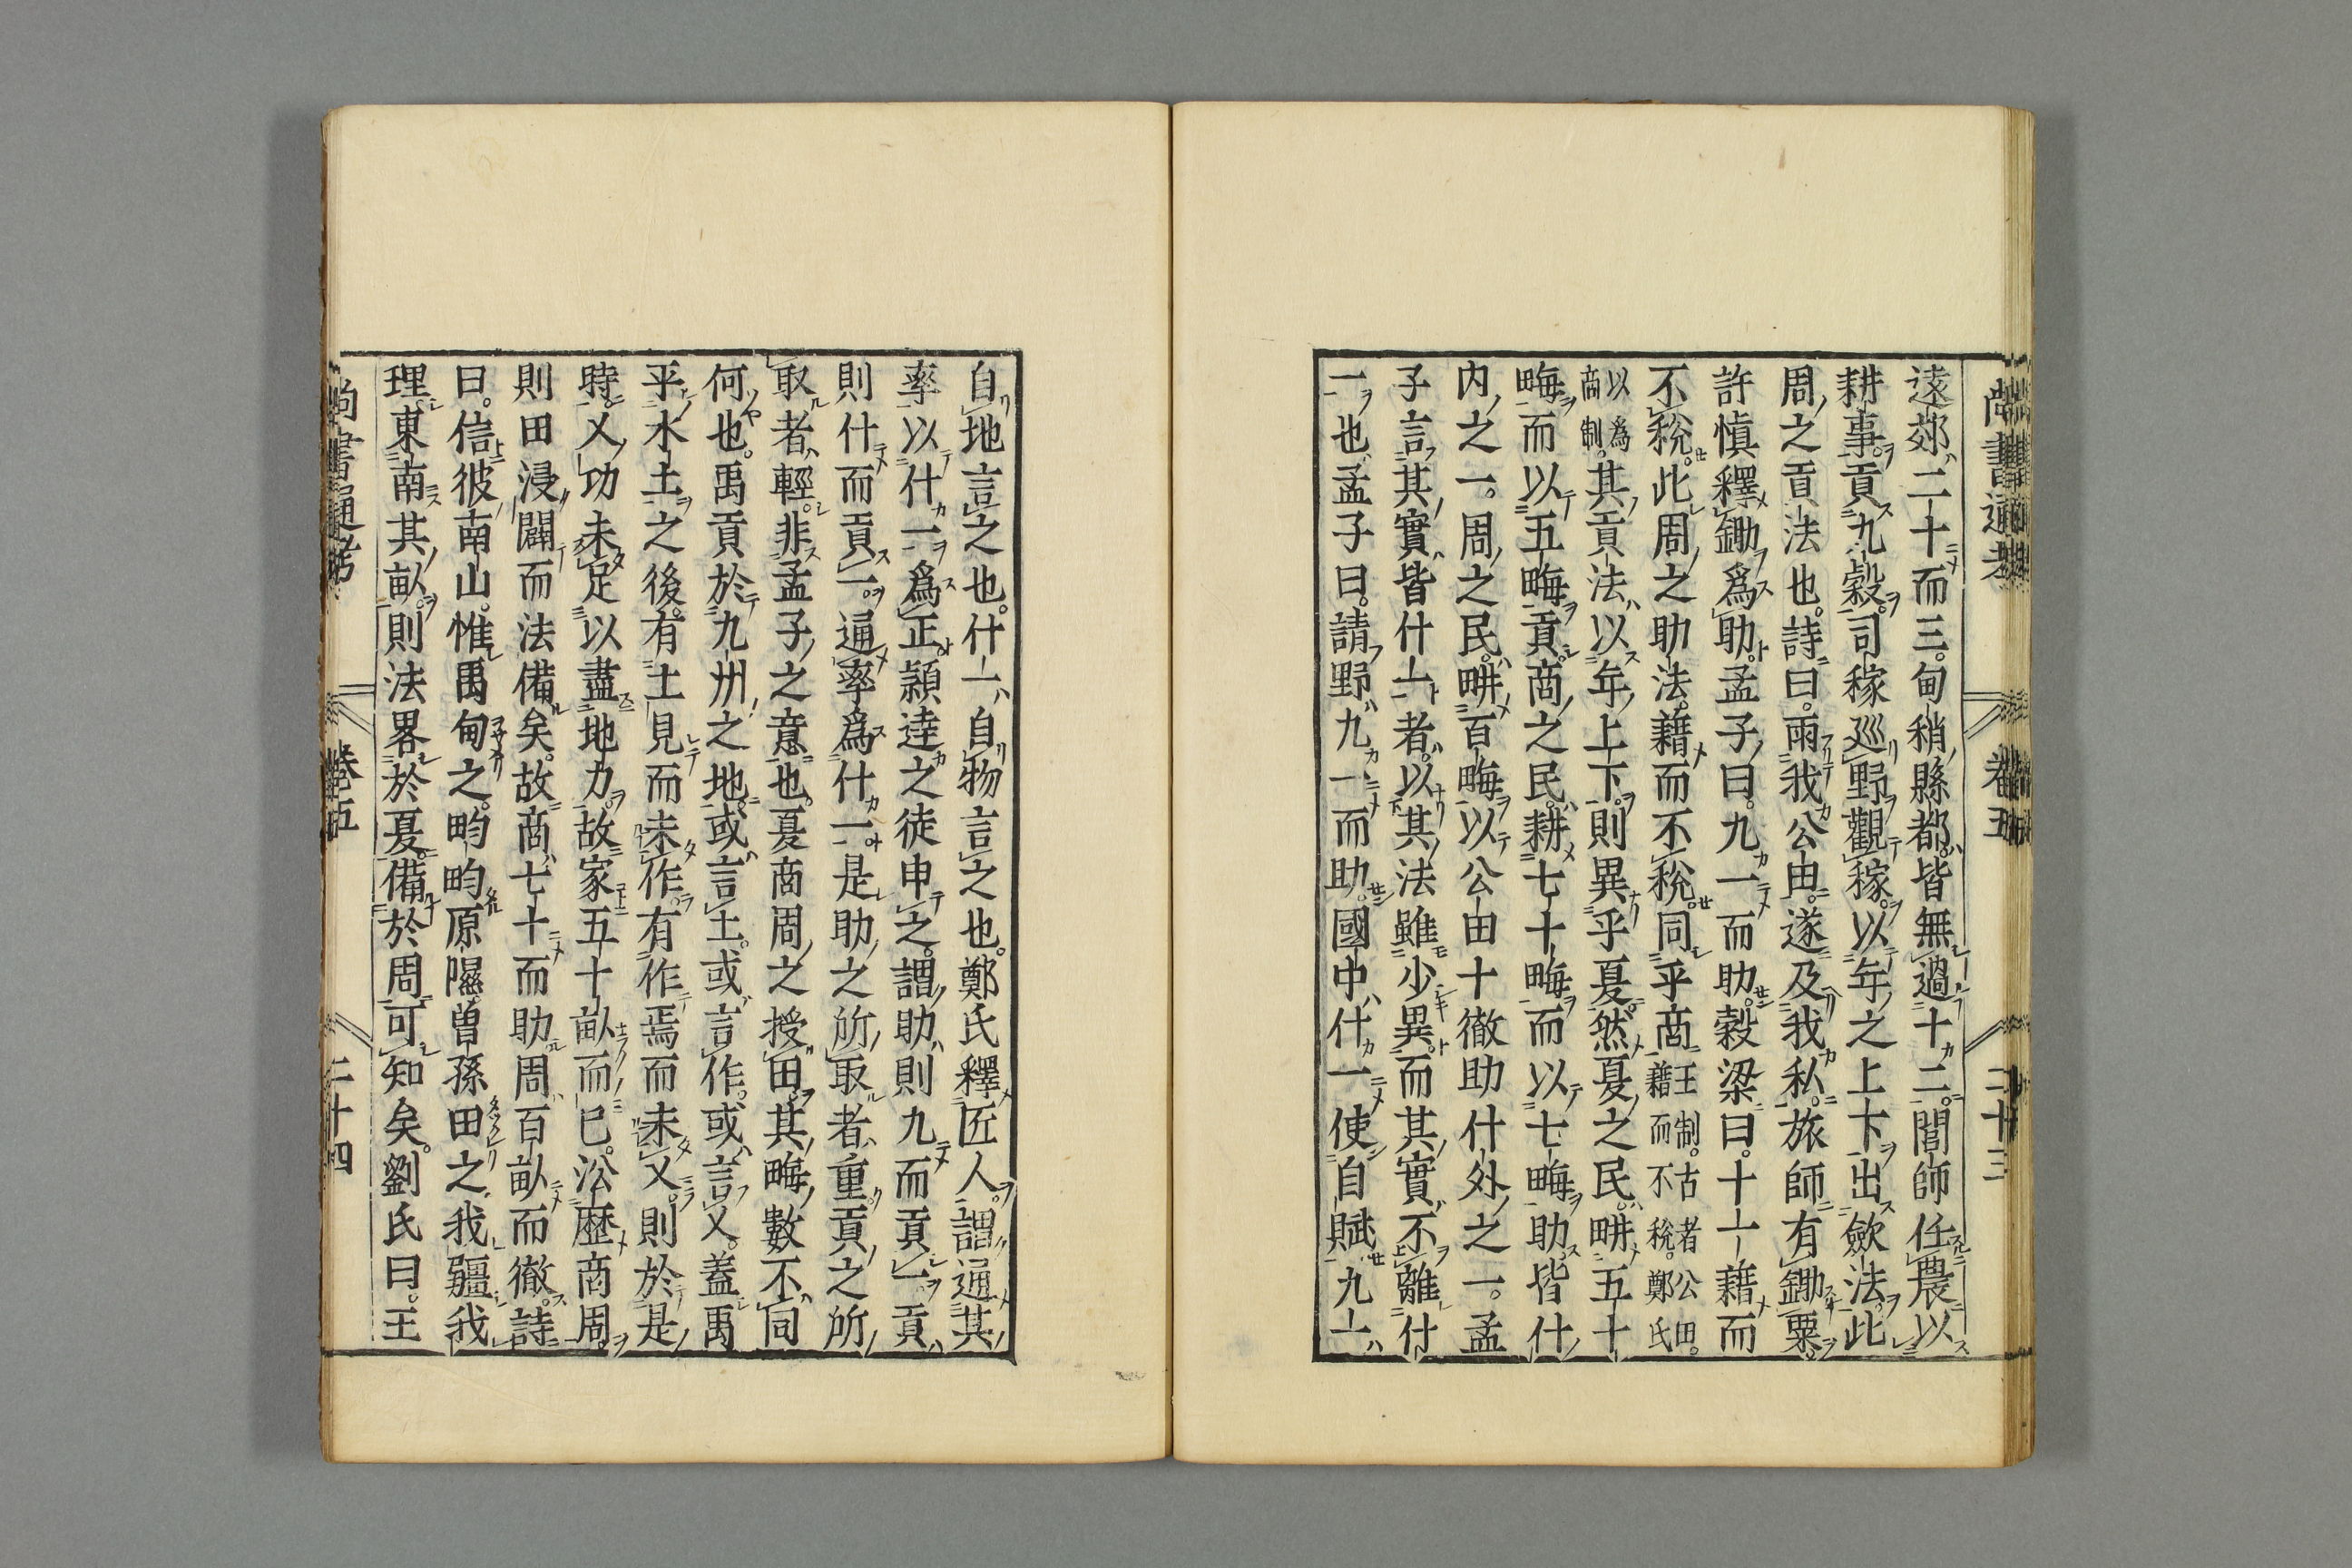 尚書通考 卷五 二十三
遠郊二十而三。甸稍縣都皆無過十二。閭師任農以
耕事。貢九穀。司稼巡野觀稼。以年之上下出歛法。此
周之貢法也。詩曰。雨我公田。遂及我私。旅師有鋤粟。
許慎釋鋤爲助。孟子曰。九一而助。穀梁曰。十一藉而
不稅。此周之助法。藉而不稅。同乎商王制。古者公田。藉而不稅。鄭氏
以爲商制。其貢法以年上下。則異乎夏。然夏之民。畊五十
畮而以五畮貢。商之民。耕七十畮而以七畮助。皆什
內之一。周之民。畊百畮以公田十徹助什外之一。孟
子言其實皆什一者。以其法雖少異。而其實不離什
一也。孟子曰。請野九一而助。國中什一使自賦。九一
自地言之也。什一自物言之也。鄭氏釋匠人。謂通其
率以什一爲正。頴達之徒申之。謂助則九而貢一。貢
則什而貢一。通率爲什一。是助之所取者重。貢之所
取者輕。非孟子之意也。夏商周之授田。其畮數不同
何也。禹貢於九州之地。或言土。或言作。或言乂。蓋禹
平水土之後。有土見而未作。有作焉而未乂。則於是
時。乂功未足以盡地力。故家五十畝而已。㳂歷商周。
則田浸闢而法備矣。故商七十而助。周百畝而徹。詩
曰。信彼南山。惟禹甸之。畇畇原隰。曾孫田之。我疆我
理。東南其畝。則法畧於夏。備於周。可知矣。劉氏曰。王
尚書通考 卷五 二十四